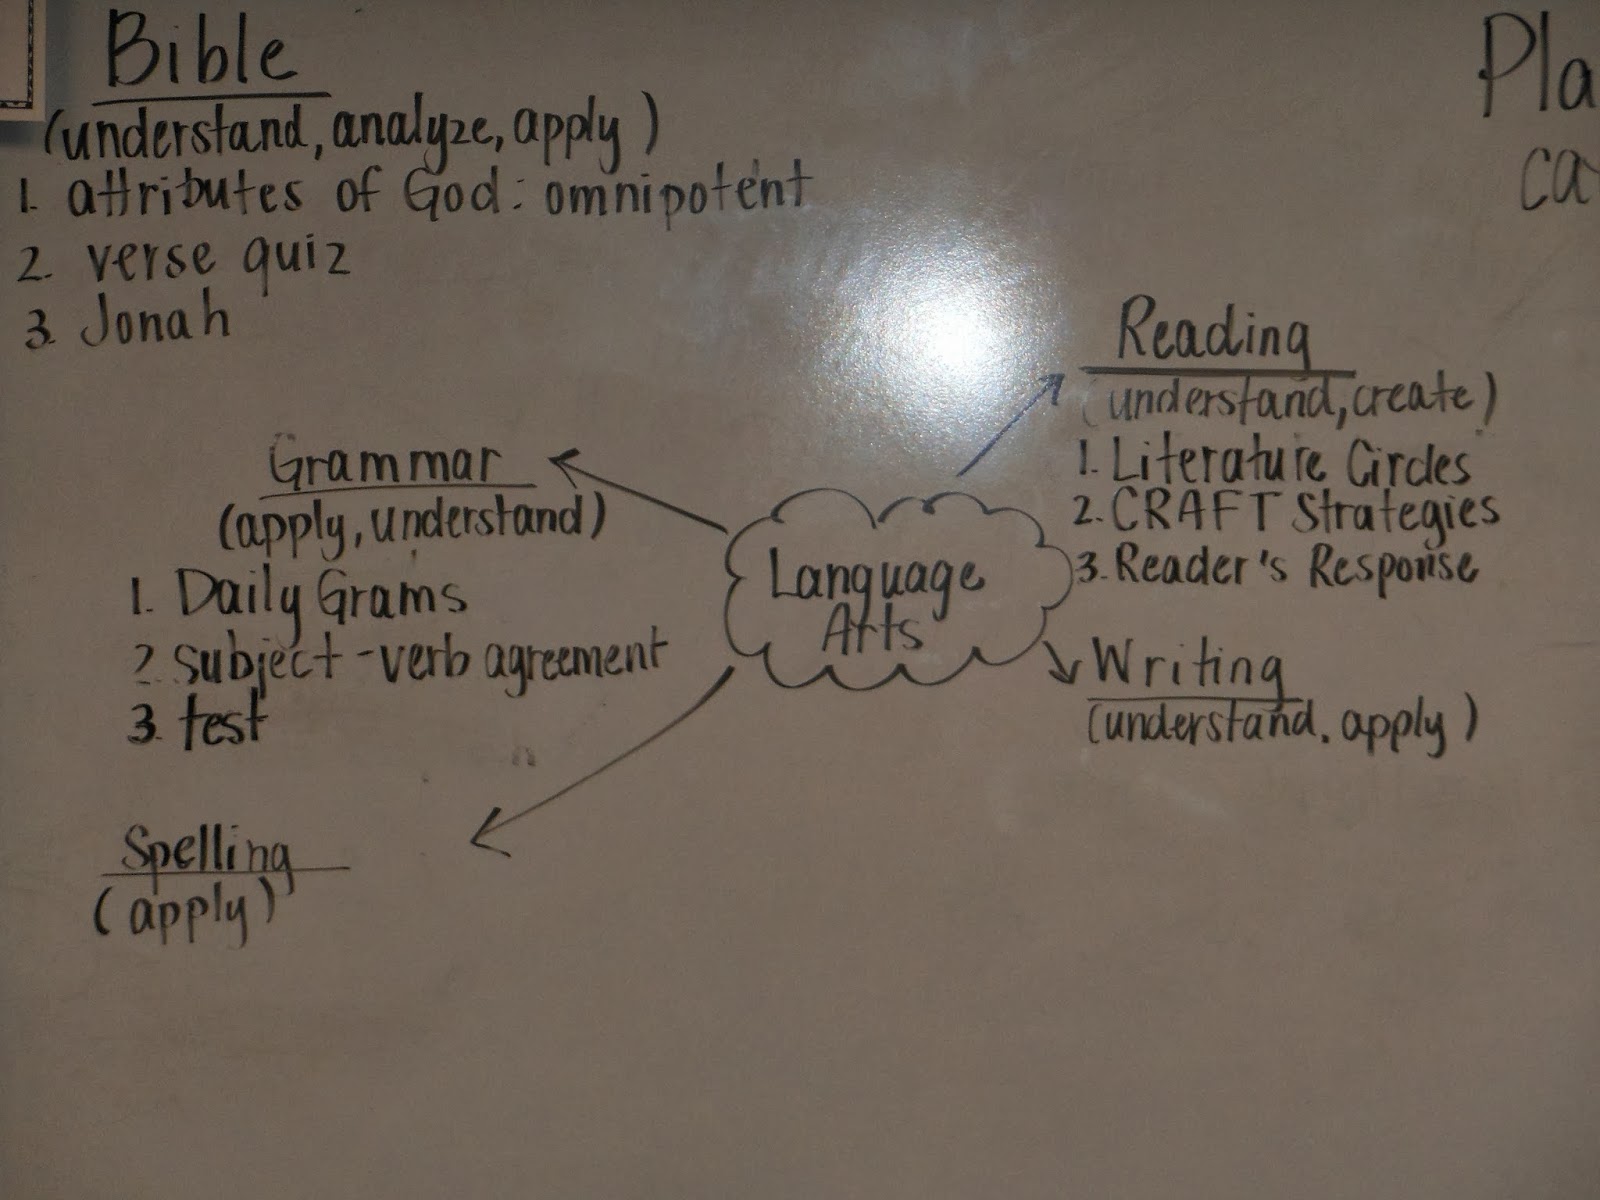 Bible
(understand, analyze, apply)
1. attributes of God: omnipotent
2. verse quiz
3. Jonah
Pla
ca
Grammar
(apply, understand)
1. Daily Grams
2. subject-verb agreement
3. test
Spelling
(apply)
Language
Arts
Reading
(understand, create)
1. Literature Circles
2. CRAFT Strategies
3. Reader's Response
Writing
(understand, apply)